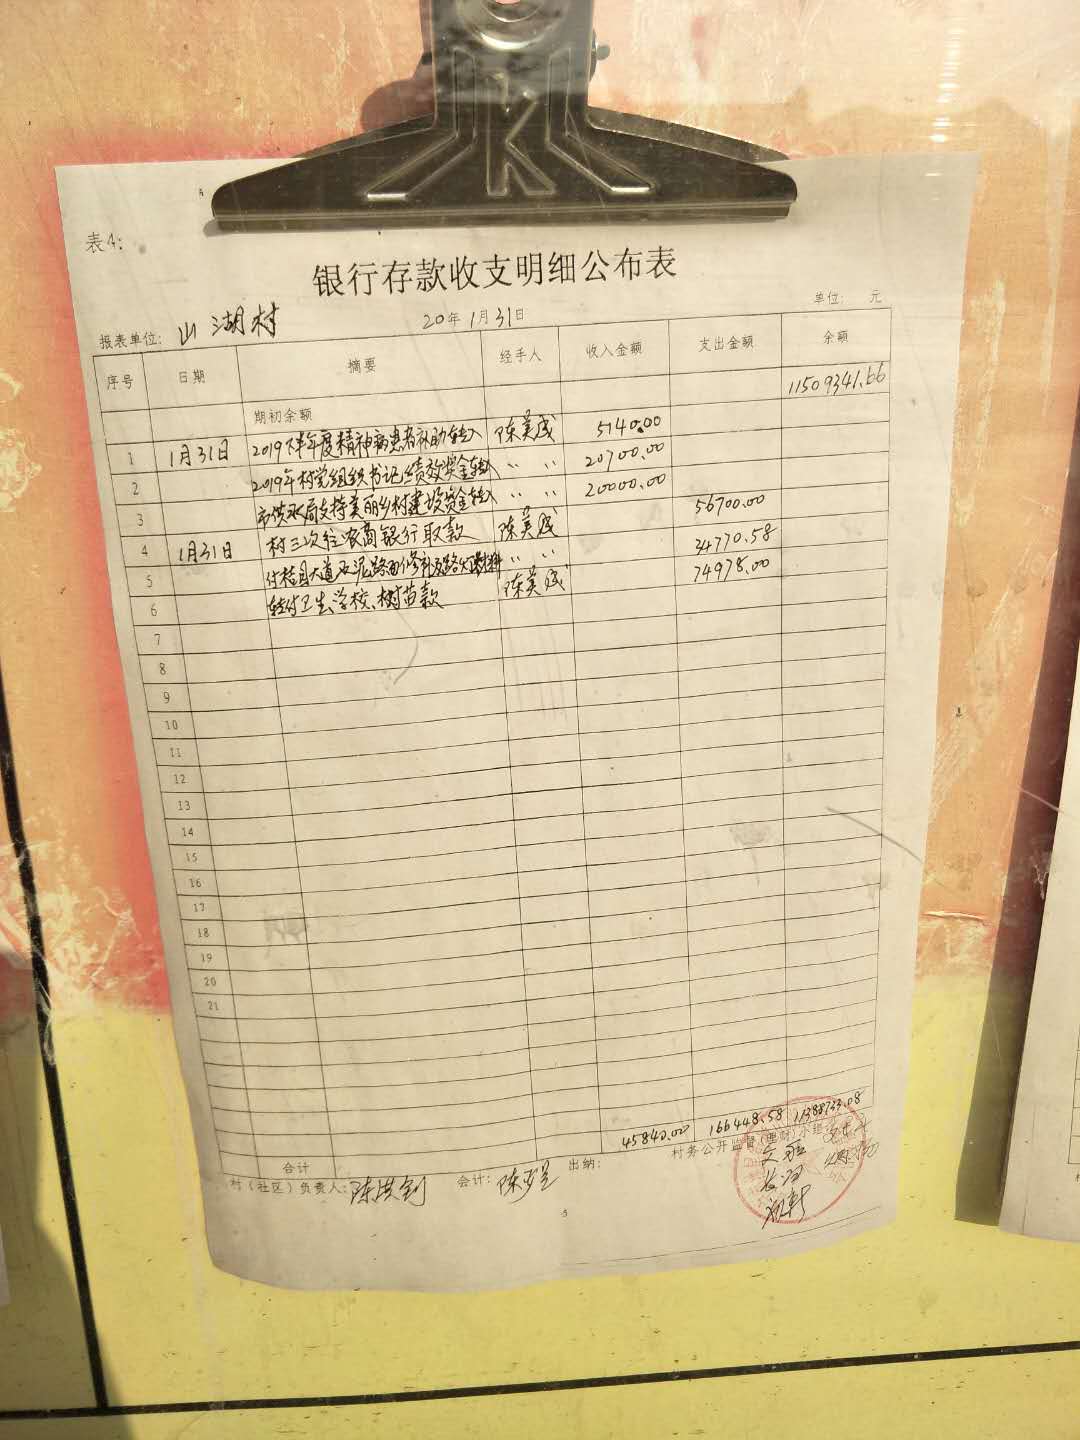 表4:
银行存款收支明细公布表
报表单位: 山湖村 20年1月31日 单位: 元
序号 日期 摘要 经手人 收入金额 支出金额 余额
期初余额 11509341.66
1 1月31日 2019下半年度精神病患者补助转入 陈美成 5140.00
2 2019年村党组织书记绩效奖金转入 〃 〃 20700.00
3 市供水局支持美丽乡村建设资金转入 〃 〃 20000.00
4 1月31日 村三次往农商银行取款 陈美成 56700.00
5 付桂目大道水泥路面修补及路灯材料 〃 〃 34770.58
6 转付卫生、学校、树苗款 陈美成 74978.00
7
8
9
10
11
12
13
14
15
16
17
18
19
20
21
合计 45840.00 166448.58 11388733.08
村(社区)负责人: 会计: 出纳: 村务公开监督(理财)小组
5